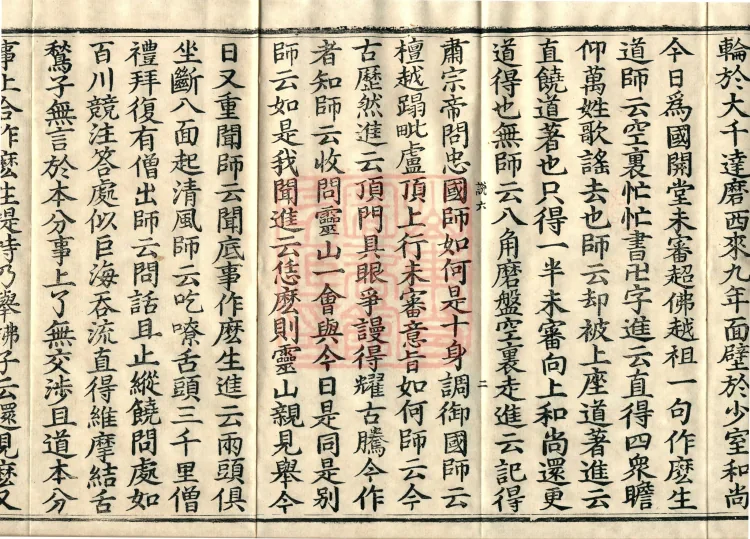 輪於大千達磨西來九年面壁於少室和尚
今日爲國開堂未審超佛越祖一句作麽生
道師云空裏忙忙書卍字進云直得四衆瞻
仰萬姓歌謠去也師云却被上座道著進云
直饒道著也只得一半未審向上和尚還更
道得也無師云八角磨盤空裏走進云記得
說六
二
肅宗帝問忠國師如何是十身調御國師云
檀越蹋毗盧頂上行未審意旨如何師云今
古歷然進云頂門具眼爭謾得耀古騰今作
者知師云收問靈山一會與今日是同是別
師云如是我聞進云恁麽則靈山親見舉今
日又重聞師云聞底事作麽生進云兩頭俱
坐斷八面起清風師云吃嘹舌頭三千里僧
禮拜復有僧出師云問話且止縱饒問處如
百川競注答處似巨海吞流直得維摩結舌
鶖子無言於本分事上了無交涉且道本分
事上合作麽生是時乃舉拂子云還見麽又